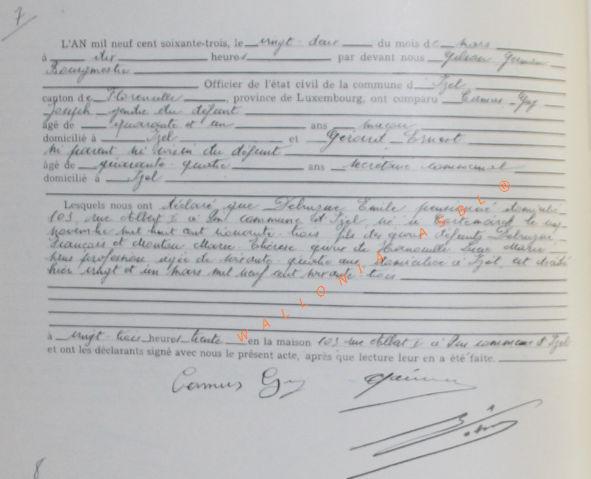 7
L'AN mil neuf cent soixante-trois, le vingt-deux du mois de mars
à dix heures par devant nous
Bourgmestre
Officier de l'état civil de la commune d'Izel
canton de Florenville, province de Luxembourg, ont comparu Camus Guy
Joseph gendre du défunt
âgé de quarante et un ans
domicilié à Izel et Gérard Ernest
ni parent ni voisin du défunt
âgé de quarante-quatre ans secrétaire communal
domicilié à Izel
Lesquels nous ont déclaré que Emile pensionné domicilié
103, rue Albert I à commune d'Izel né à le
novembre mil huit cent nonante-trois fils de défunts
François et Marie Thérèse de Marie
sans profession âgée de soixante quatre ans domiciliée à Izel, est décédé
hier vingt et un mars mil neuf cent soixante trois
à vingt-trois heures trente en la maison 103 rue Albert I à commune d'Izel
et ont les déclarants signé avec nous le présent acte, après que lecture leur en a été faite.
Camus Guy
8
WALLONIA ASBL ®